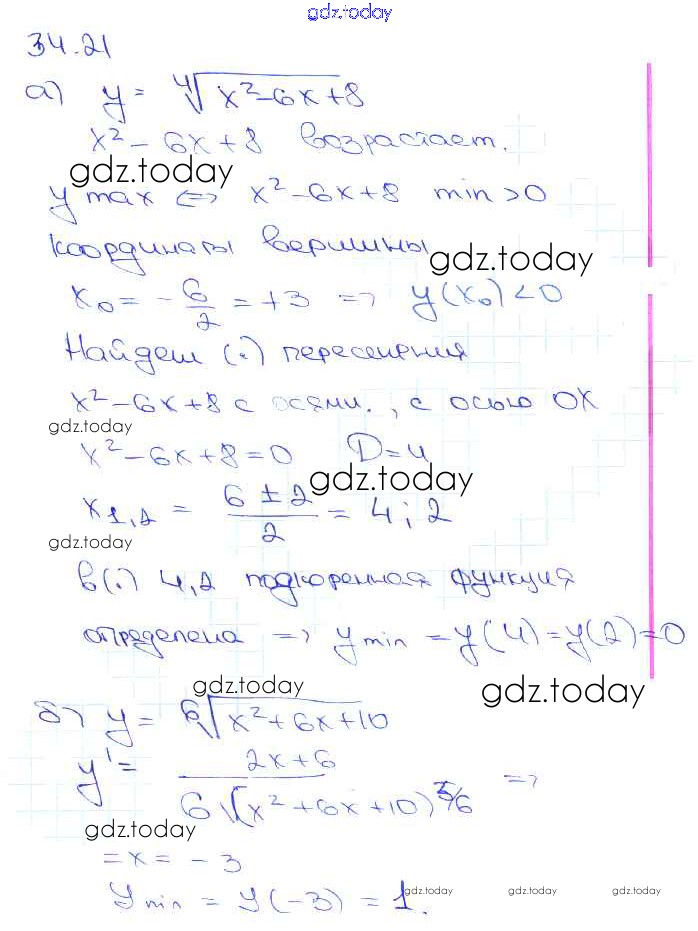 gdz.today
34.21
а) y = ⁴√x²-6x+8
x² - 6x + 8 возрастает.
gdz.today
y max <=> x²-6x+8 min >0
координаты вершины
gdz.today
x₀ = - 6/2 = +3 => y(x₀) < 0
Найдем (.) пересечения
x² - 6x + 8 с осями. , с осью OX
gdz.today
x² - 6x + 8 = 0 D = 4
gdz.today
x₁,₂ = 6 ± 2 / 2 = 4 ; 2
gdz.today
в (.) 4,2 подкоренная функция
определена => y min = y(4) = y(2) = 0
gdz.today
gdz.today
б) y = ⁶√x² + 6x + 10
y' = 2x + 6 / 6 (x² + 6x + 10)^5/6 =>
gdz.today
= x = - 3
y min = y(-3) = 1.
gdz.today gdz.today gdz.today